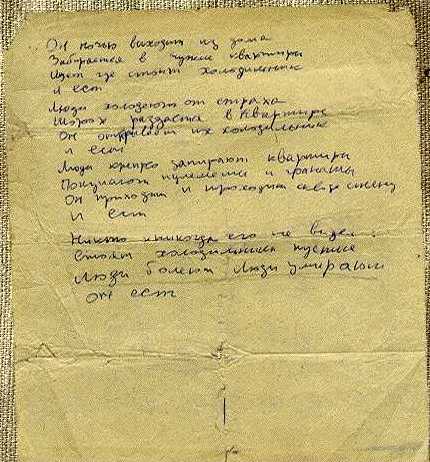 Он ночью выходит из дома
Забирается в чужие квартиры
Ищет где стоит холодильник
и ест
Люди холодеют от страха
Шорох раздастся в квартире
Он открывает их холодильник
и ест
Люди крепко запирают квартиры
Покупают пулеметы и гранаты
Он приходит и проходит сквозь стену
И ест
Никто никогда его не видел
Стоят холодильники пустые
Люди болеют Люди умирают
Он ест